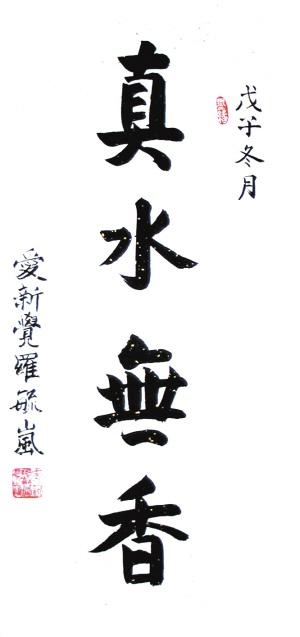 戊冬月
真水無香
愛新覺羅毓嵐